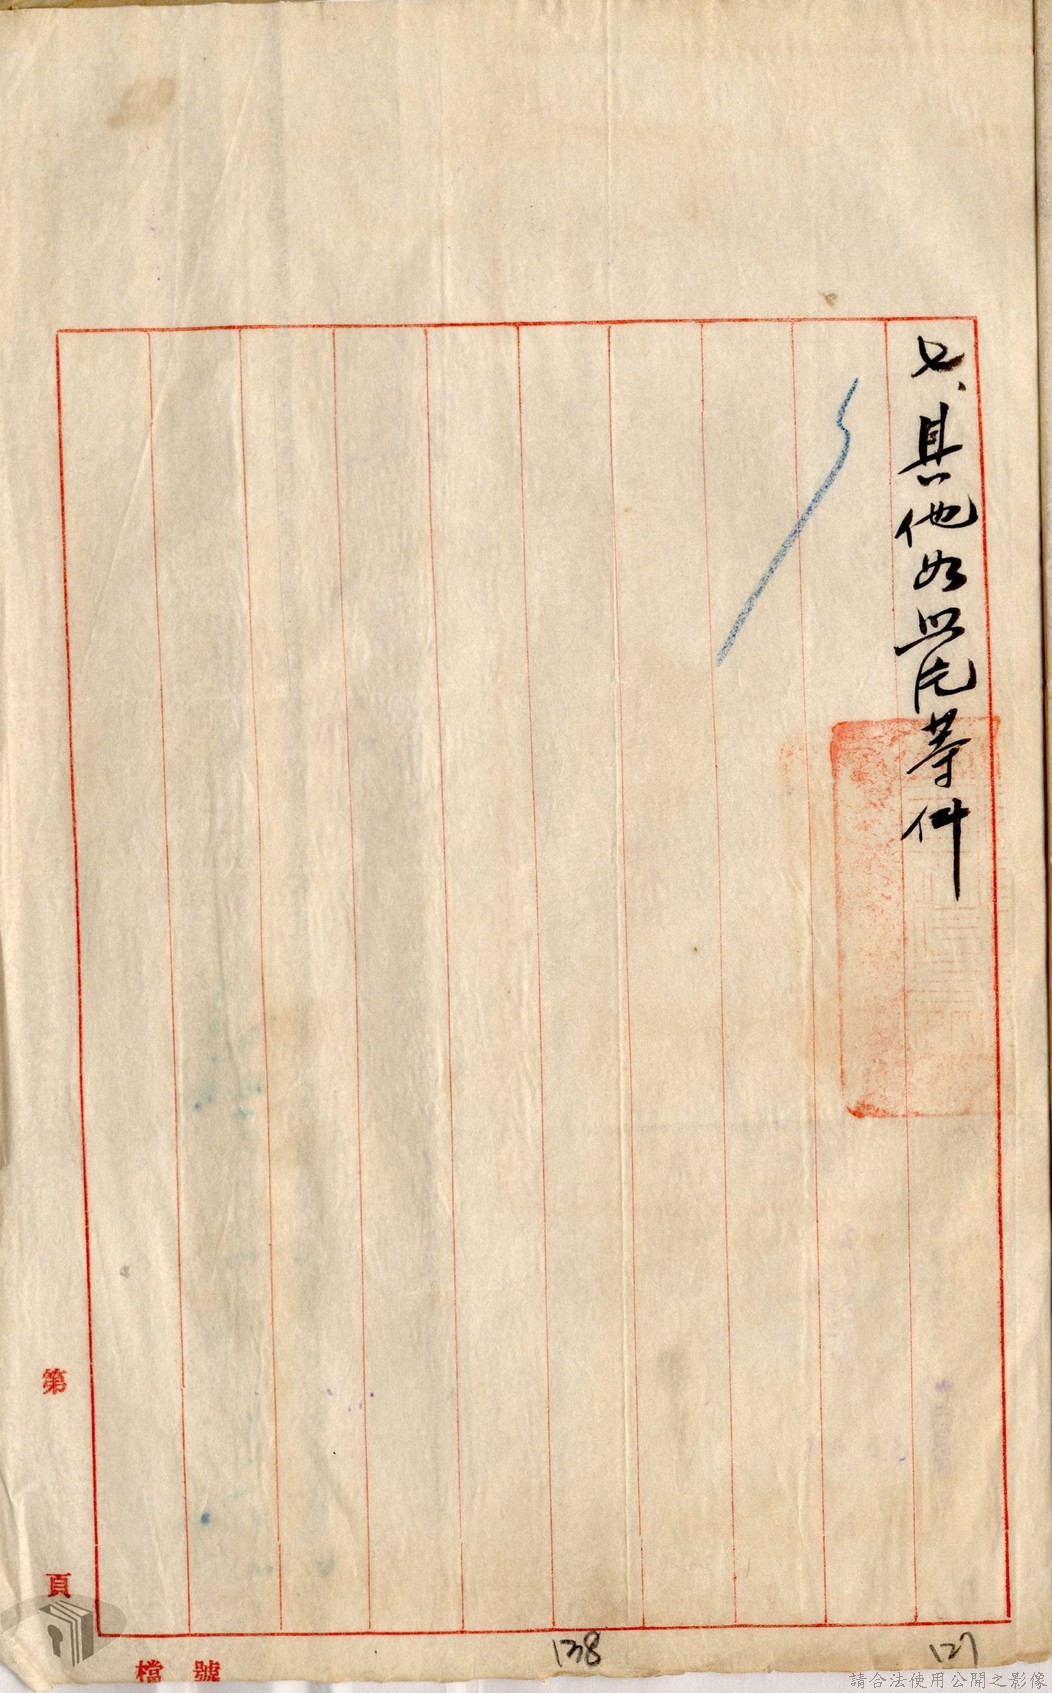 其他如照片等件
第
頁
檔號
138
127
請合法使用公開之影像